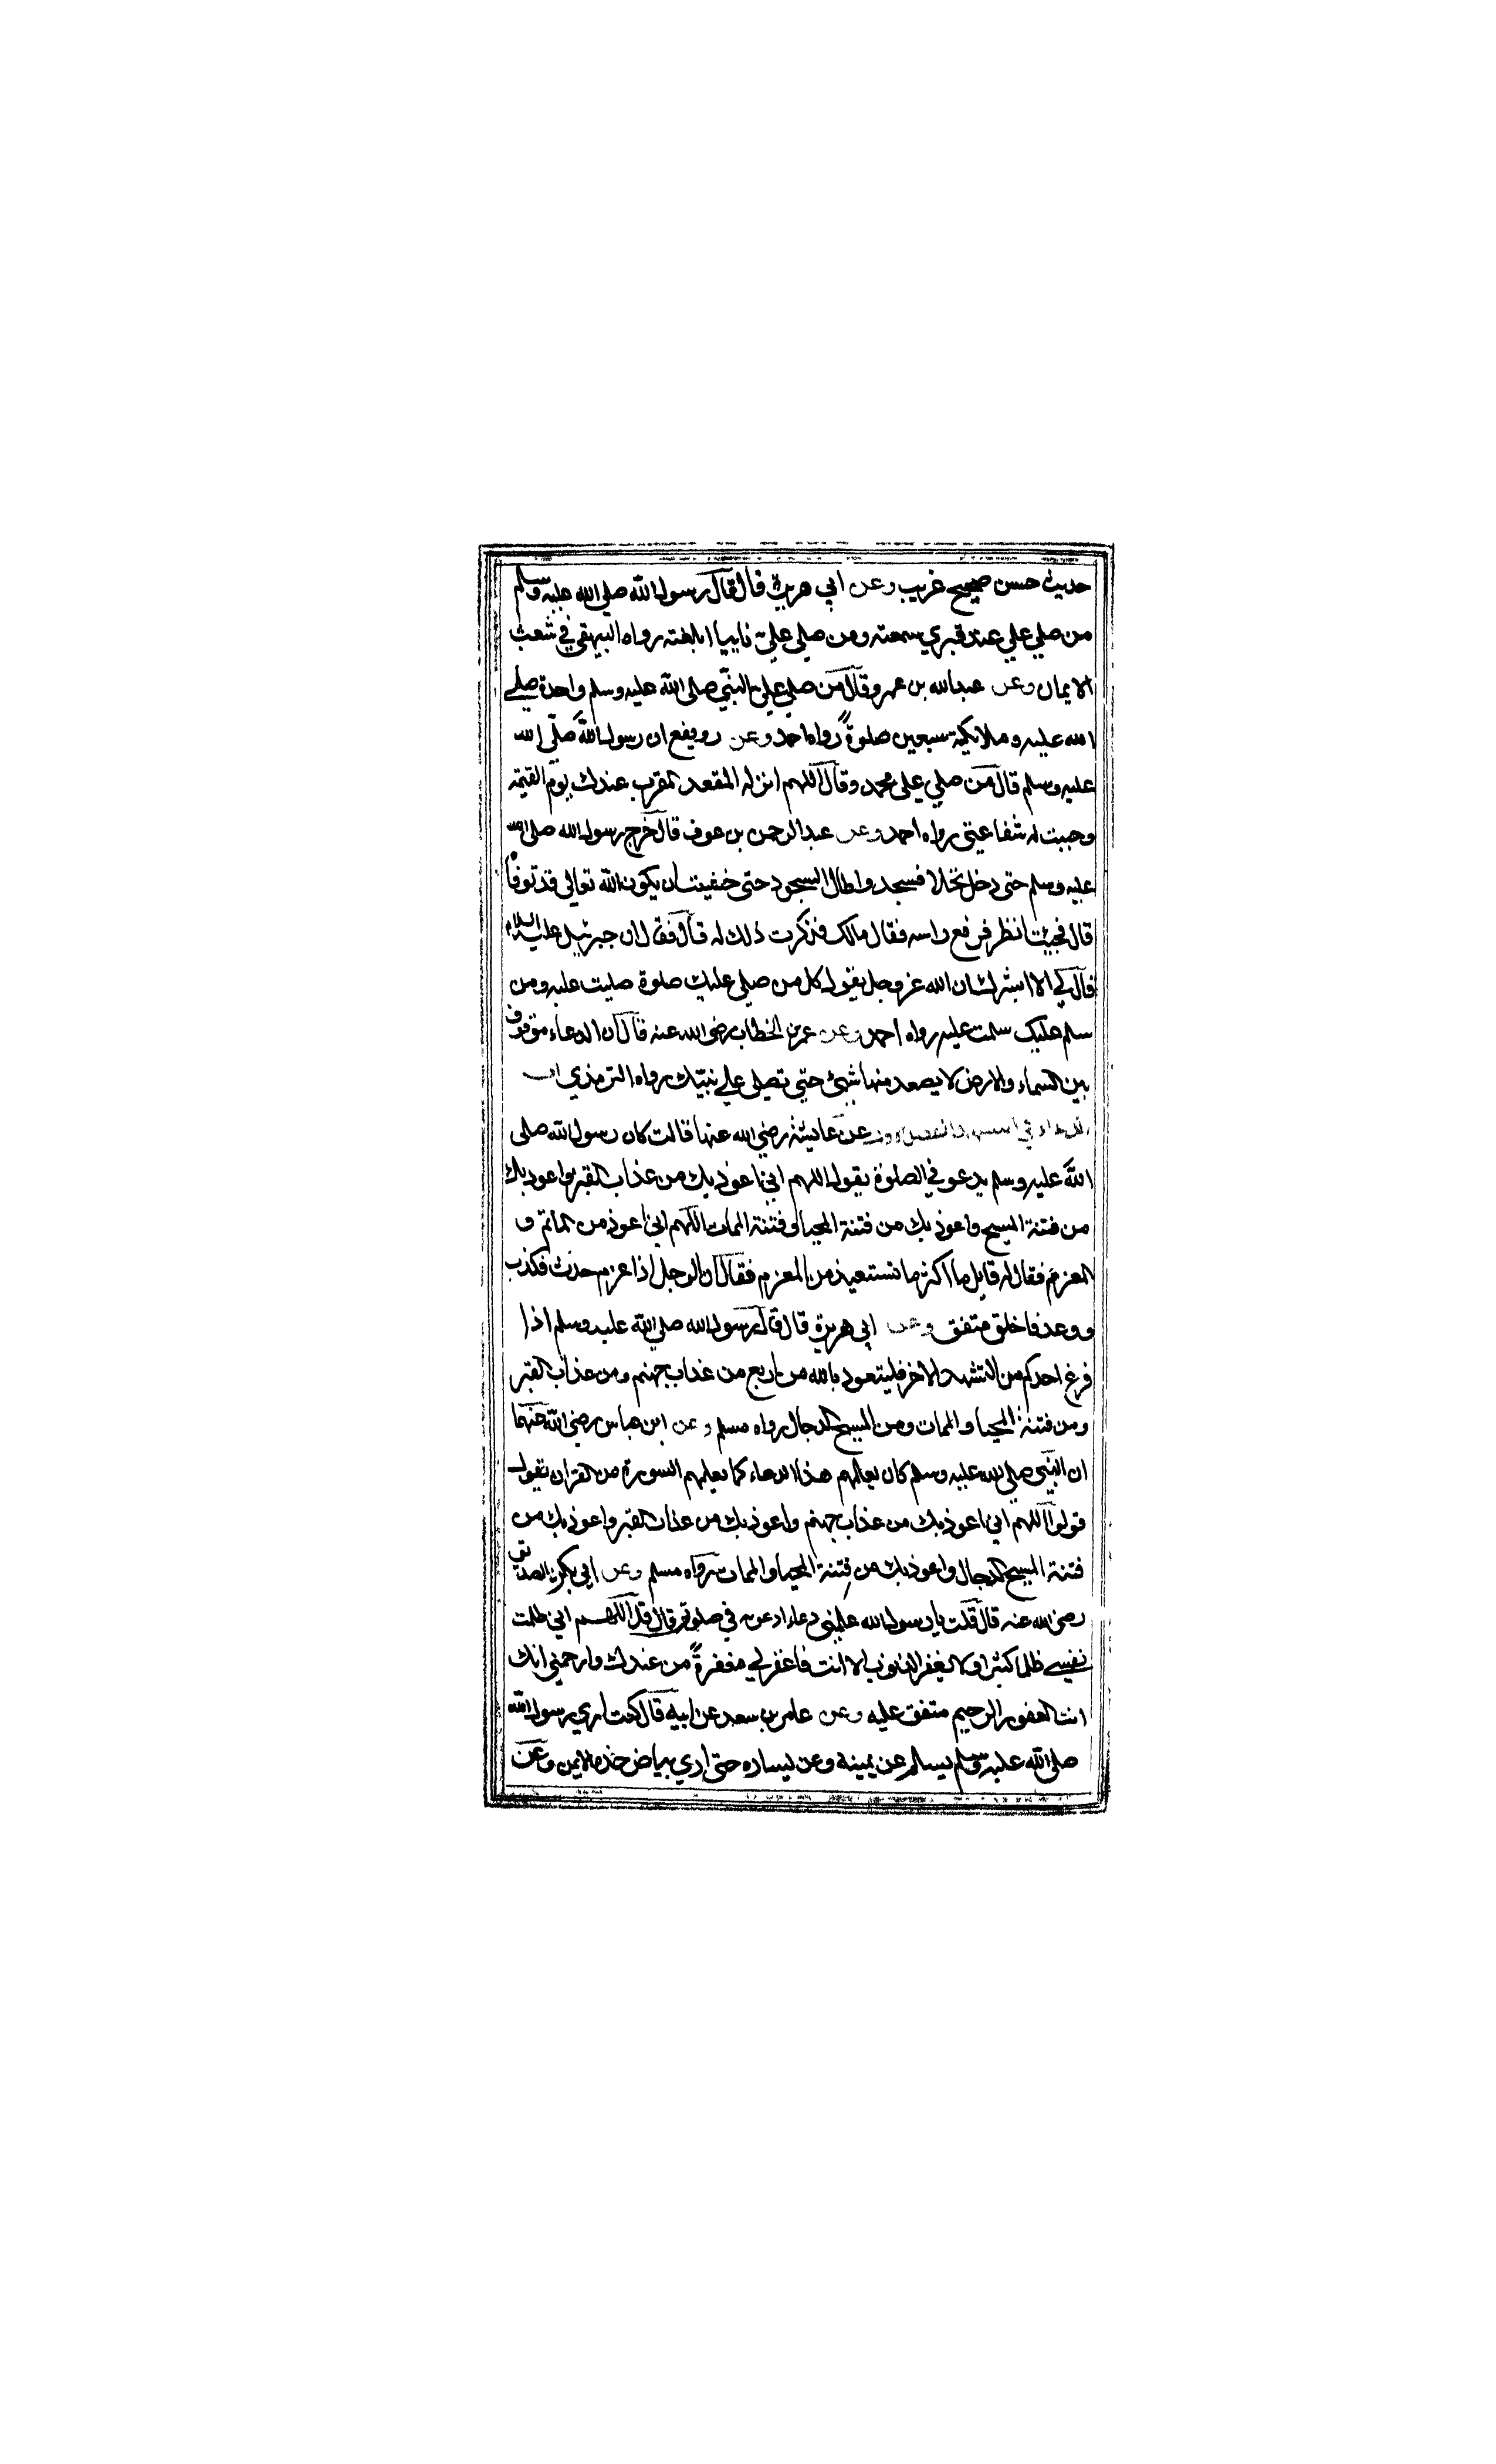 حديث حسن صحيح غريب وعن ابي هريرة قال قال رسول الله صلي الله عليه وسلم
من صلي علي عند قبري سمعته ومن صلي علي نايبا ابلغته رواه البيهقي في شعب
الايمان وعن عبدالله بن عمرو قال من صلي علي النبي صلى الله عليه وسلم واحدة صلي
الله عليه وملائكته سبعين صلوة رواه احمد وعن رويفع ان رسول الله صلى الله
عليه وسلم قال من صلي علي محمد وقال اللهم انزله المقعد المقرب عندك يوم القيمة
وجبت له شفاعتي رواه احمد وعن عبدالرحمن بن عوف قال خرج رسول الله صلى الله
عليه وسلم حتى دخل نخلا فسجد واطال السجود حتى خفيت ان يكون الله تعالى قد توفا
قال فجئت انظر فرفع راسه فقال مالك فذكرت ذلك له قال فقال ان جبرئيل عليه السلام
قال لي الا ابشرك ان الله عز وجل يقول كل من صلي عليك صلوة صليت عليه ومن
سلم عليك سلمت عليه رواه احمد وعن عمر بن الخطاب رضى الله عنه قال ان الدعاء موقوف
بين السماء والارض لا يصعد منها شيئ حتى تصلي علي نبيك رواه الترمذي
الدعاء في عن عايشة رضي الله عنها قالت كان رسول الله صلى
الله عليه وسلم يدعو في الصلوة يقول اللهم اني اعوذ بك من عذاب القبر واعوذ بك
من فتنة المسيح واعوذ بك من فتنة المحيا وفتنة الممات اللهم اني اعوذ من الماثم و
المغرم فقال له قايل ما اكثر ما تستعيذ من المغرم فقال ان الرجل اذا غرم حدث فكذب
ووعد فاخلف متفق وعن ابي هريرة قال قال رسول الله صلي الله عليه وسلم اذا
فرغ احدكم من التشهد الاخر فليتعوذ بالله من اربع من عذاب جهنم ومن عذاب القبر
ومن فتنة المحيا والممات ومن المسيح الدجال رواه مسلم وعن ابن عباس رضي الله عنهما
ان النبي صلي الله عليه وسلم كان يعلمهم هذا الدعاء كما يعلمهم السورة من القران يقول
قولوا اللهم اني اعوذ بك من عذاب جهنم واعوذ بك من عذاب القبر واعوذ بك من
فتنة المسيح الدجال واعوذ بك من فتنة المحيا والممات رواه مسلم وعن ابي بكر الصديق
رضى الله عنه قال قلت يا رسول الله علمني دعاء ادعو به في صلوتي قال قل اللهم اني ظلمت
نفسي ظلما كثيرا ولا يغفر الذنوب الا انت فاغفر لي مغفرة من عندك وارحمني انك
انت الغفور الرحيم متفق عليه وعن عامر بن سعد عن ابيه قال كنت اري رسول الله
صلى الله عليه وسلم يسلم عن يمينه وعن يساره حتى اري بياض خده الايمن وعن